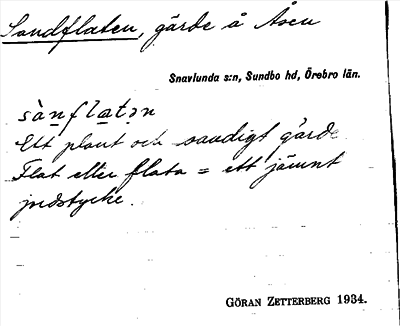 Sandflaten, gärde å Åsen
Snavlunda s:n, Sundbo hd, Örebro län.
sànflatən
Ett plant och sandigt gärde
Flat eller flata = ett jämnt
jordstycke.
GÖRAN ZETTERBERG 1934.